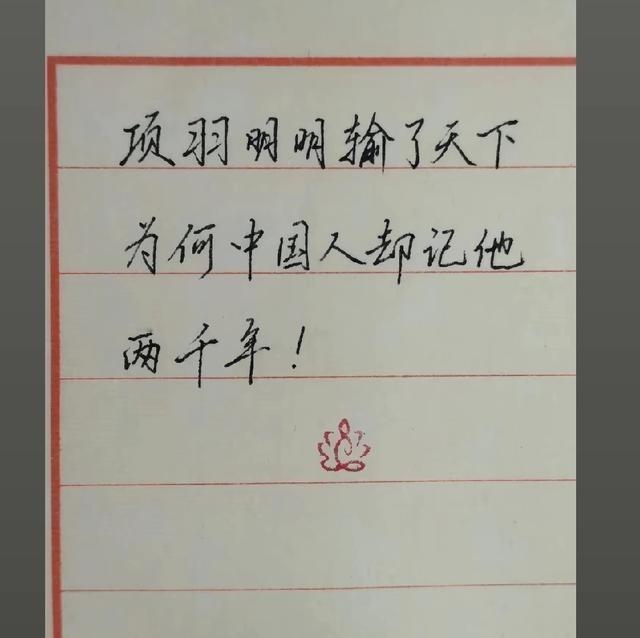 项羽明明输了天下
为何中国人却记他
两千年！